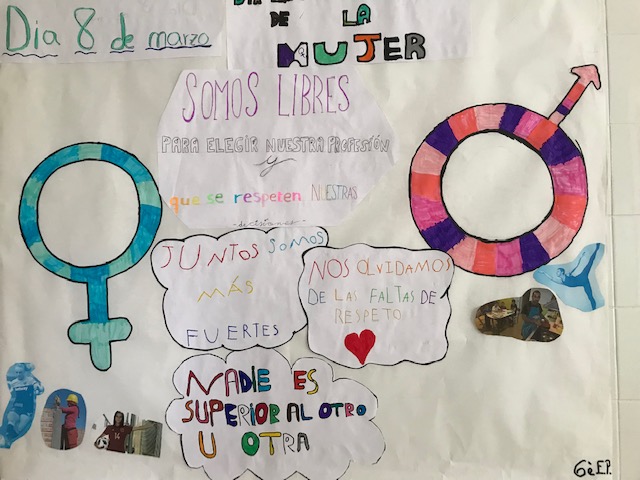 Dia 8 de marzo
DE LA
MUJER
SOMOS LIBRES
PARA ELEGIR NUESTRA PROFESIÓN
y
que se respeten NUESTRAS
-decisiones-
JUNTOS SOMOS
MÁS
FUERTES
NOS OLVIDAMOS
DE LAS FALTAS DE
RESPETO
NADIE ES
SUPERIOR AL OTRO
U OTRA
6è E.P.